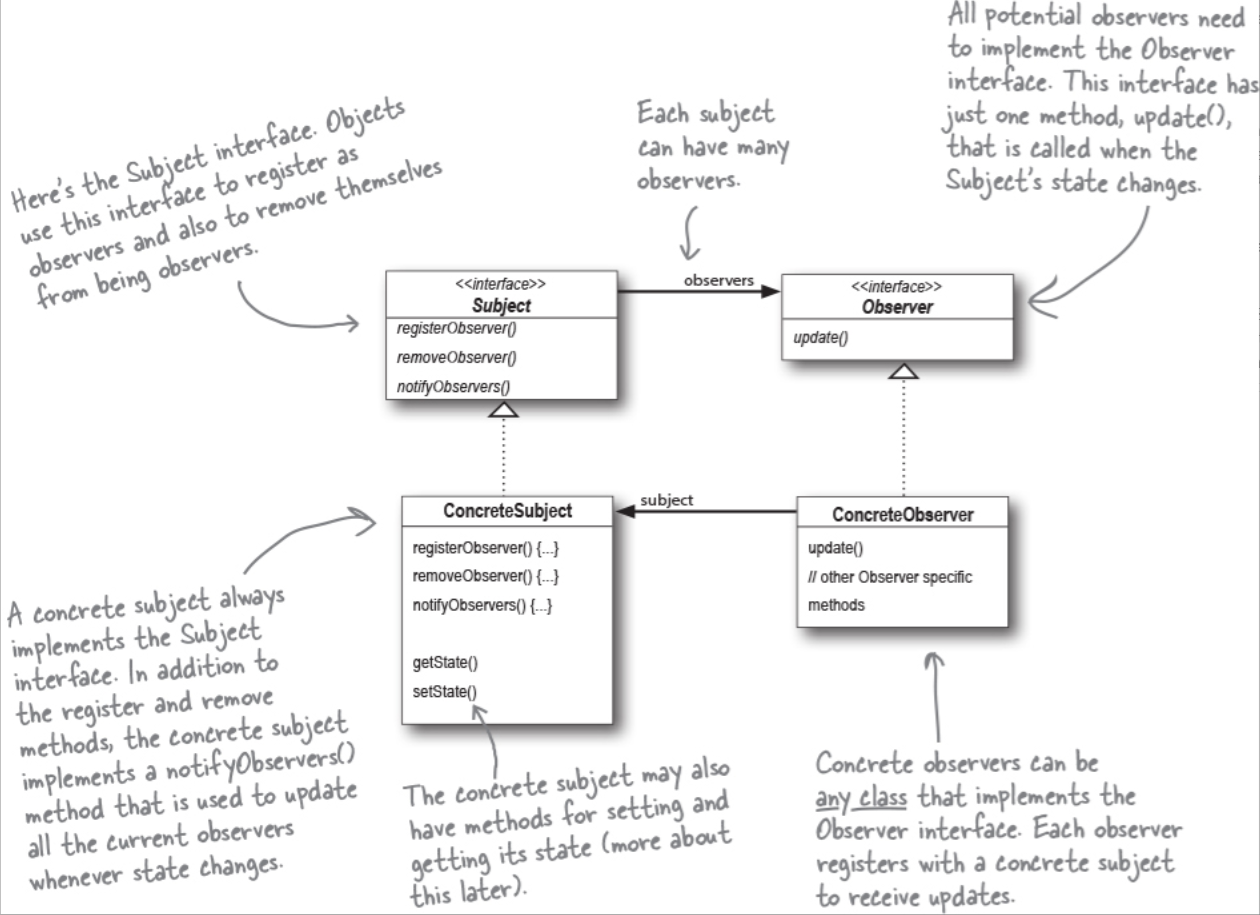 All potential observers need
to implement the Observer
interface. This interface has
just one method, update(),
that is called when the
Subject's state changes.
Here's the Subject interface. Objects
use this interface to register as
observers and also to remove themselves
from being observers.
Each subject
can have many
observers.
<<interface>>
Subject
registerObserver()
removeObserver()
notifyObservers()
observers
<<interface>>
Observer
update()
ConcreteSubject
registerObserver() {...}
removeObserver() {...}
notifyObservers() {...}
getState()
setState()
subject
ConcreteObserver
update()
// other Observer specific
methods
A concrete subject always
implements the Subject
interface. In addition to
the register and remove
methods, the concrete subject
implements a notifyObservers()
method that is used to update
all the current observers
whenever state changes.
The concrete subject may also
have methods for setting and
getting its state (more about
this later).
Concrete observers can be
any class that implements the
Observer interface. Each observer
registers with a concrete subject
to receive updates.